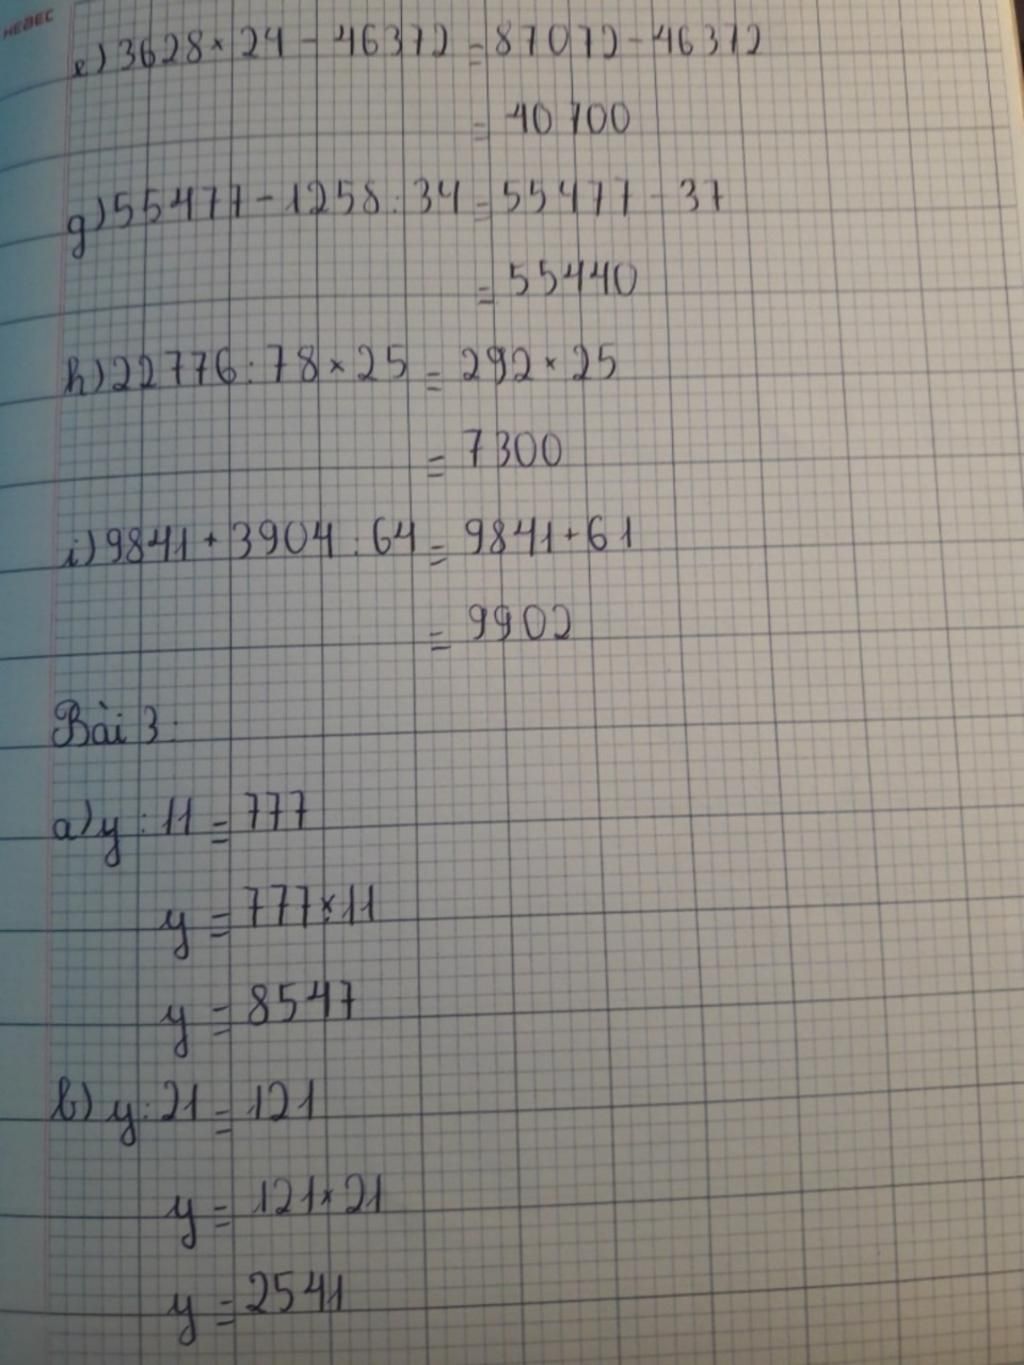 HEBEC
e) 3628 × 24 - 46372 = 87072 - 46372
= 40700
g) 55477 - 1258 : 34 = 55477 - 37
= 55440
h) 22776 : 78 × 25 = 292 × 25
= 7300
i) 9841 + 3904 : 64 = 9841 + 61
= 9902
Bài 3:
a) y : 11 = 777
y = 777 × 11
y = 8547
b) y : 21 = 121
y = 121 × 21
y = 2541